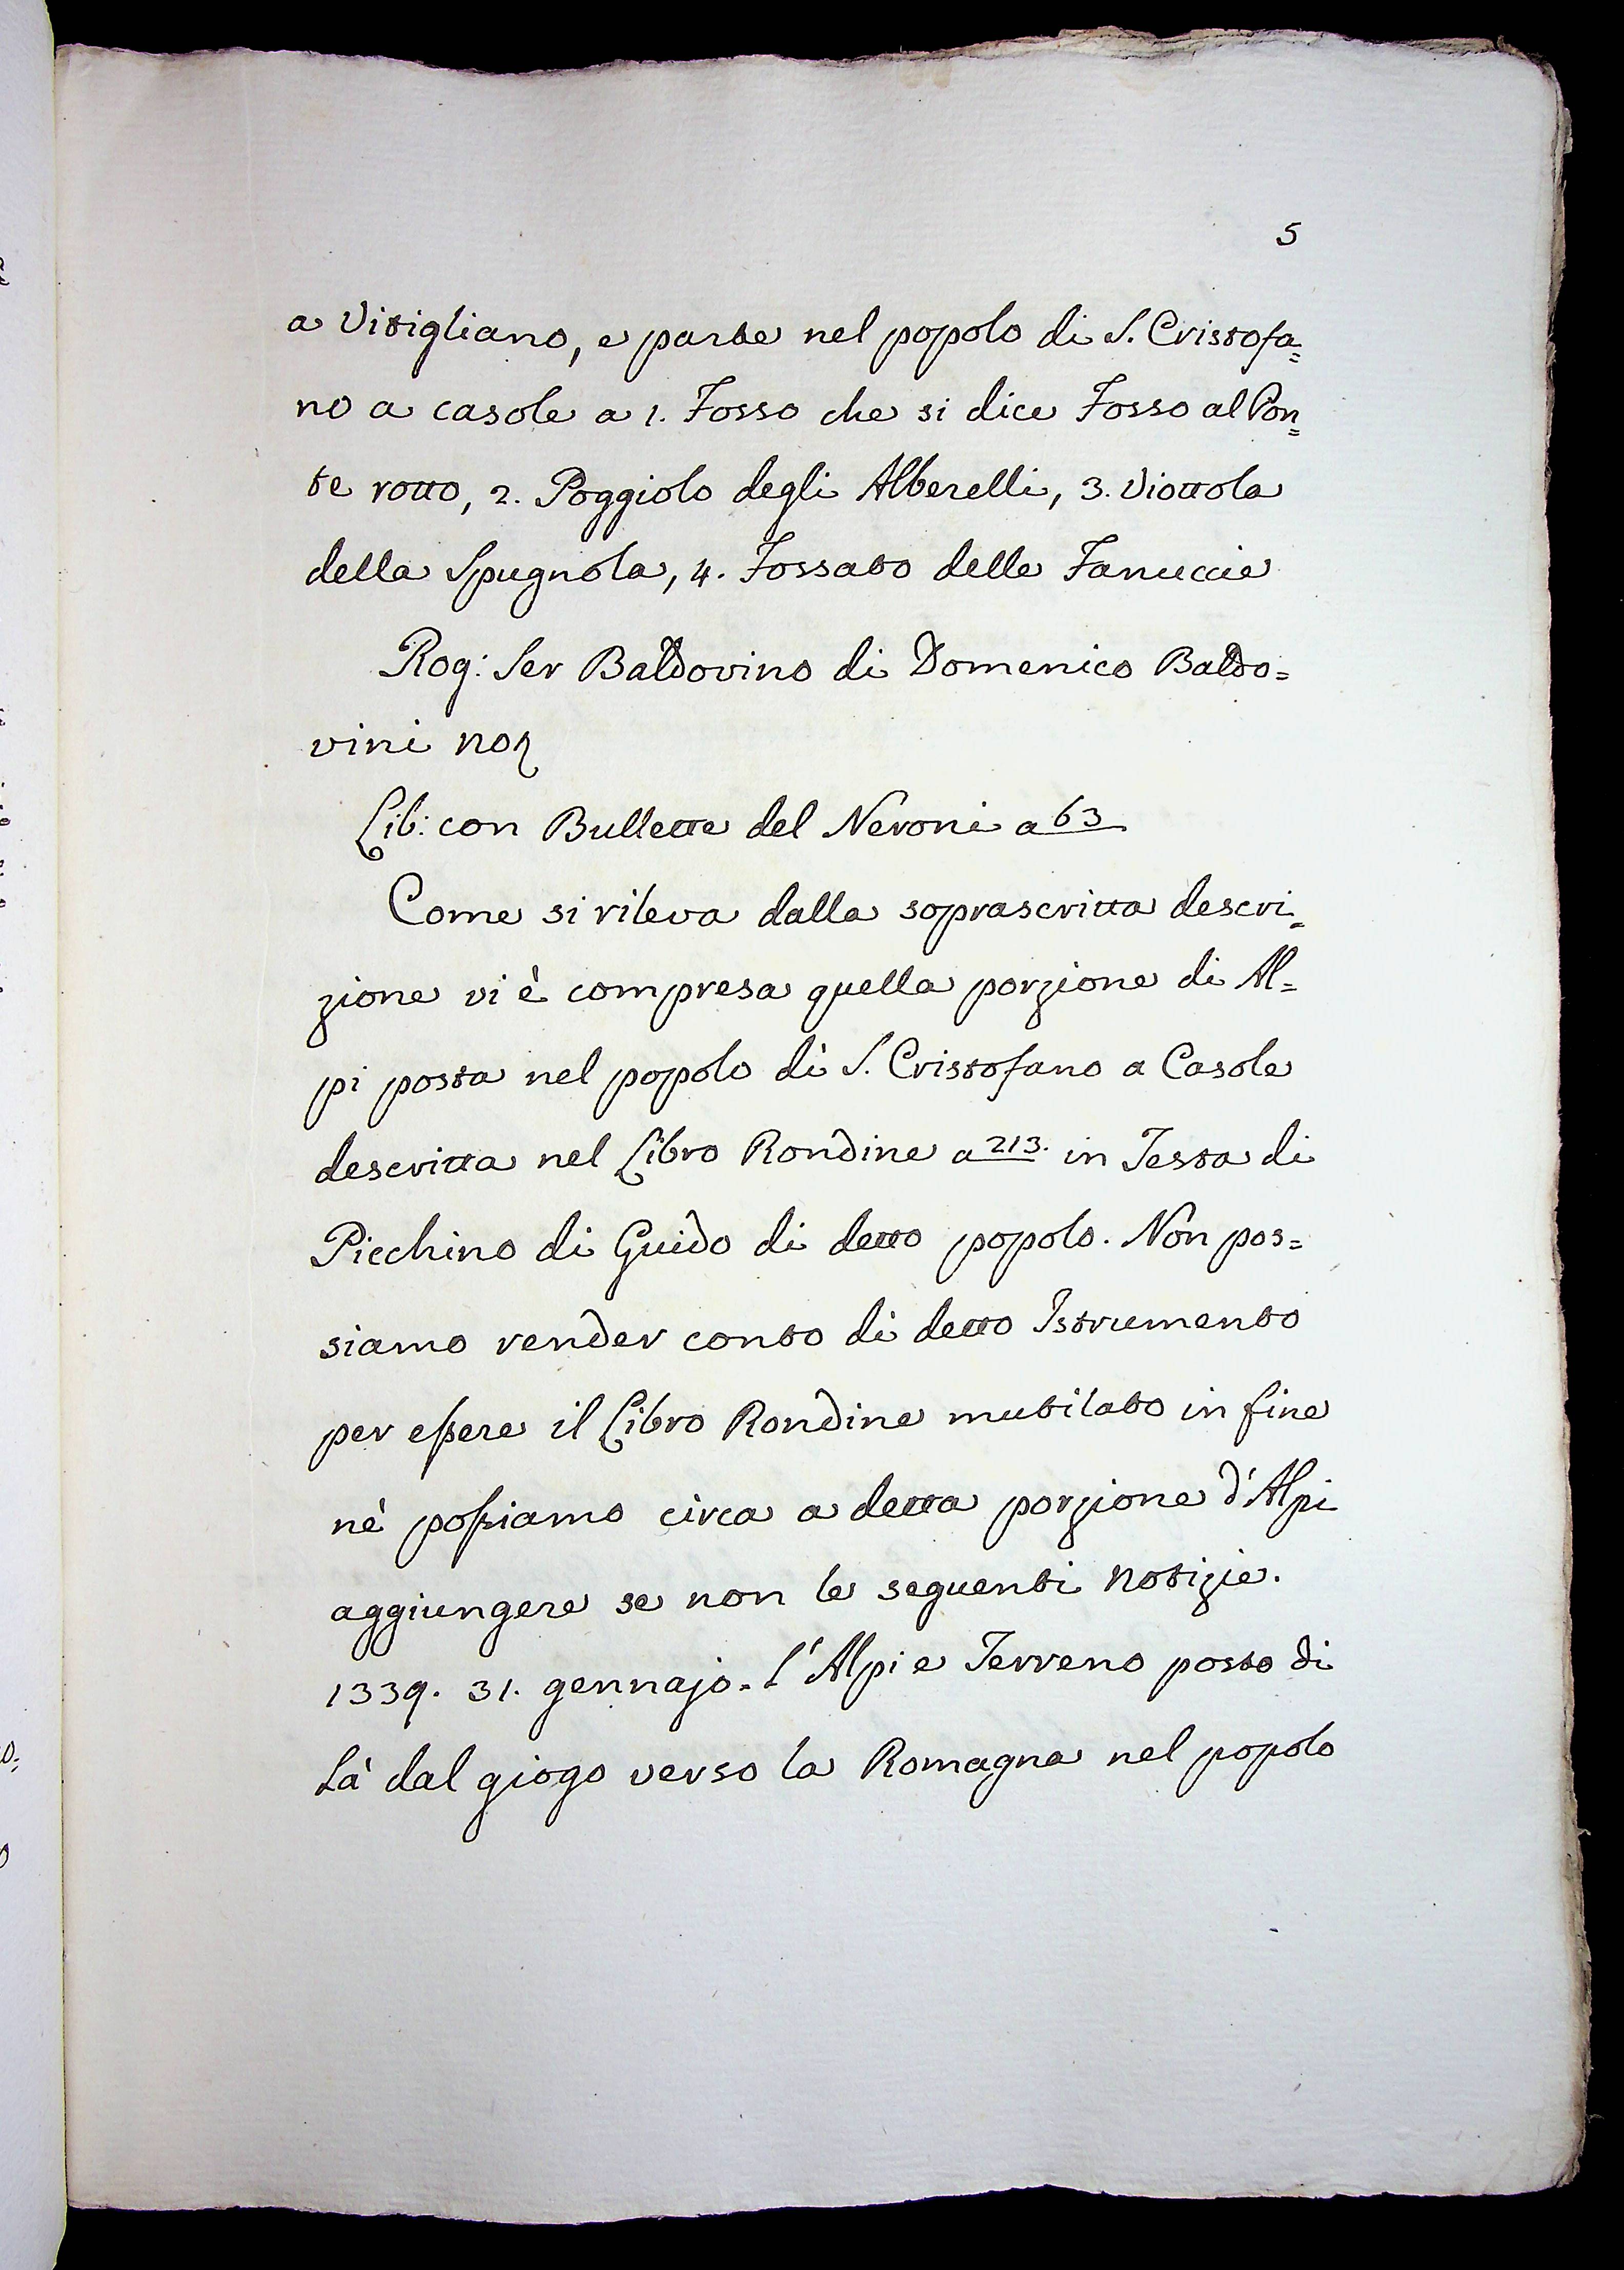 5
a Vitigliano, e parte nel popolo di S. Cristofa=
no a casole a 1. Fosso che si dice Fosso al Pon=
te rotto, 2. Poggiolo degli Alberelli, 3. Viottola
della Spugnola, 4. Fossato delle Fanuccie
Rog: Ser Baldovino di Domenico Baldo=
vini
Lib: con Bullette del Neroni a 63
Come si rileva dalla soprascritta descri=
zione vi è compresa quella porzione di Al=
pi posta nel popolo di S. Cristofano a Casole
descritta nel Libro Rondine a 213. in Testa di
Picchino di Guido di detto popolo. Non pos=
siamo render conto di detto Istrumento
per essere il Libro Rondine mutilato in fine
nè possiamo circa a detta porzione d'Alpi
aggiungere se non le seguenti notizie.
1339. 31. gennajo. l'Alpi e Terreno posto di
Là dal giogo verso la Romagna nel popolo